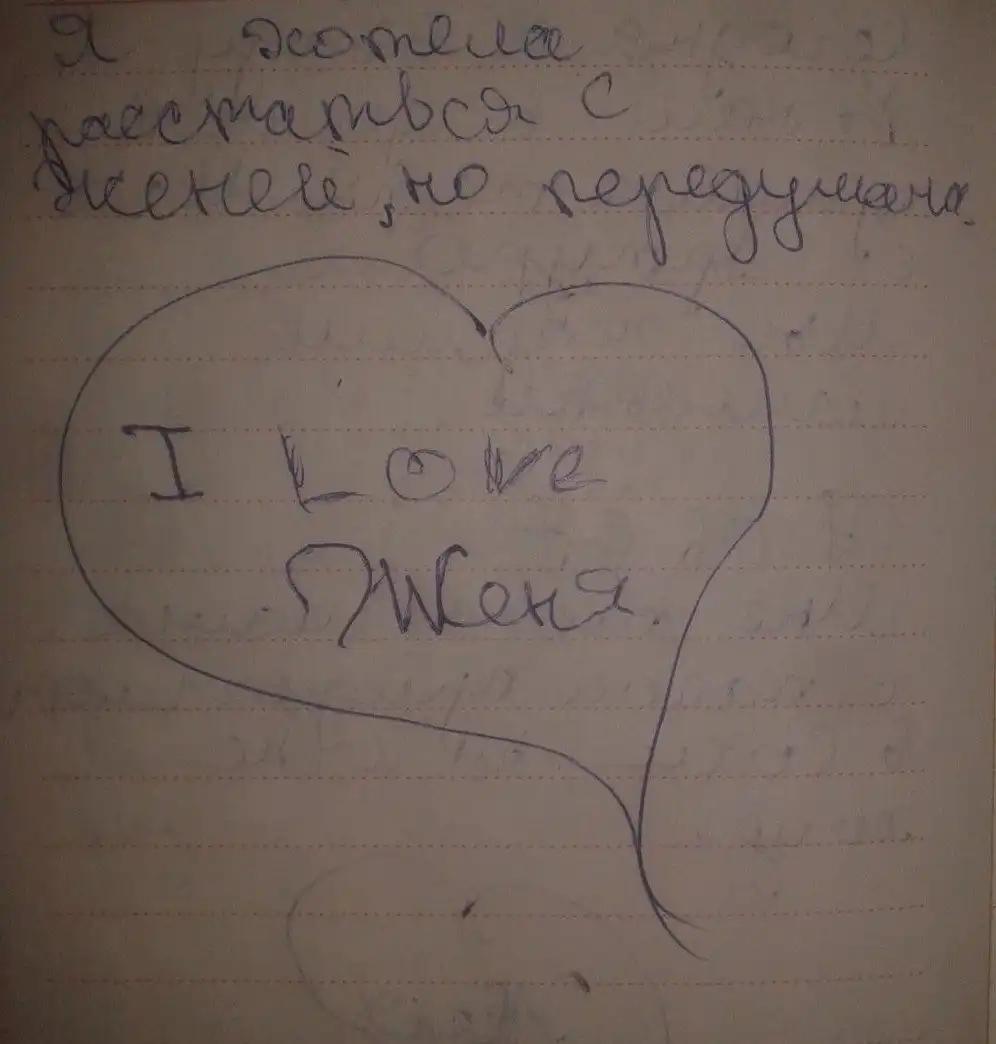 Я хотела
расстаться с
Женей, но передумала.
I Love
Женя